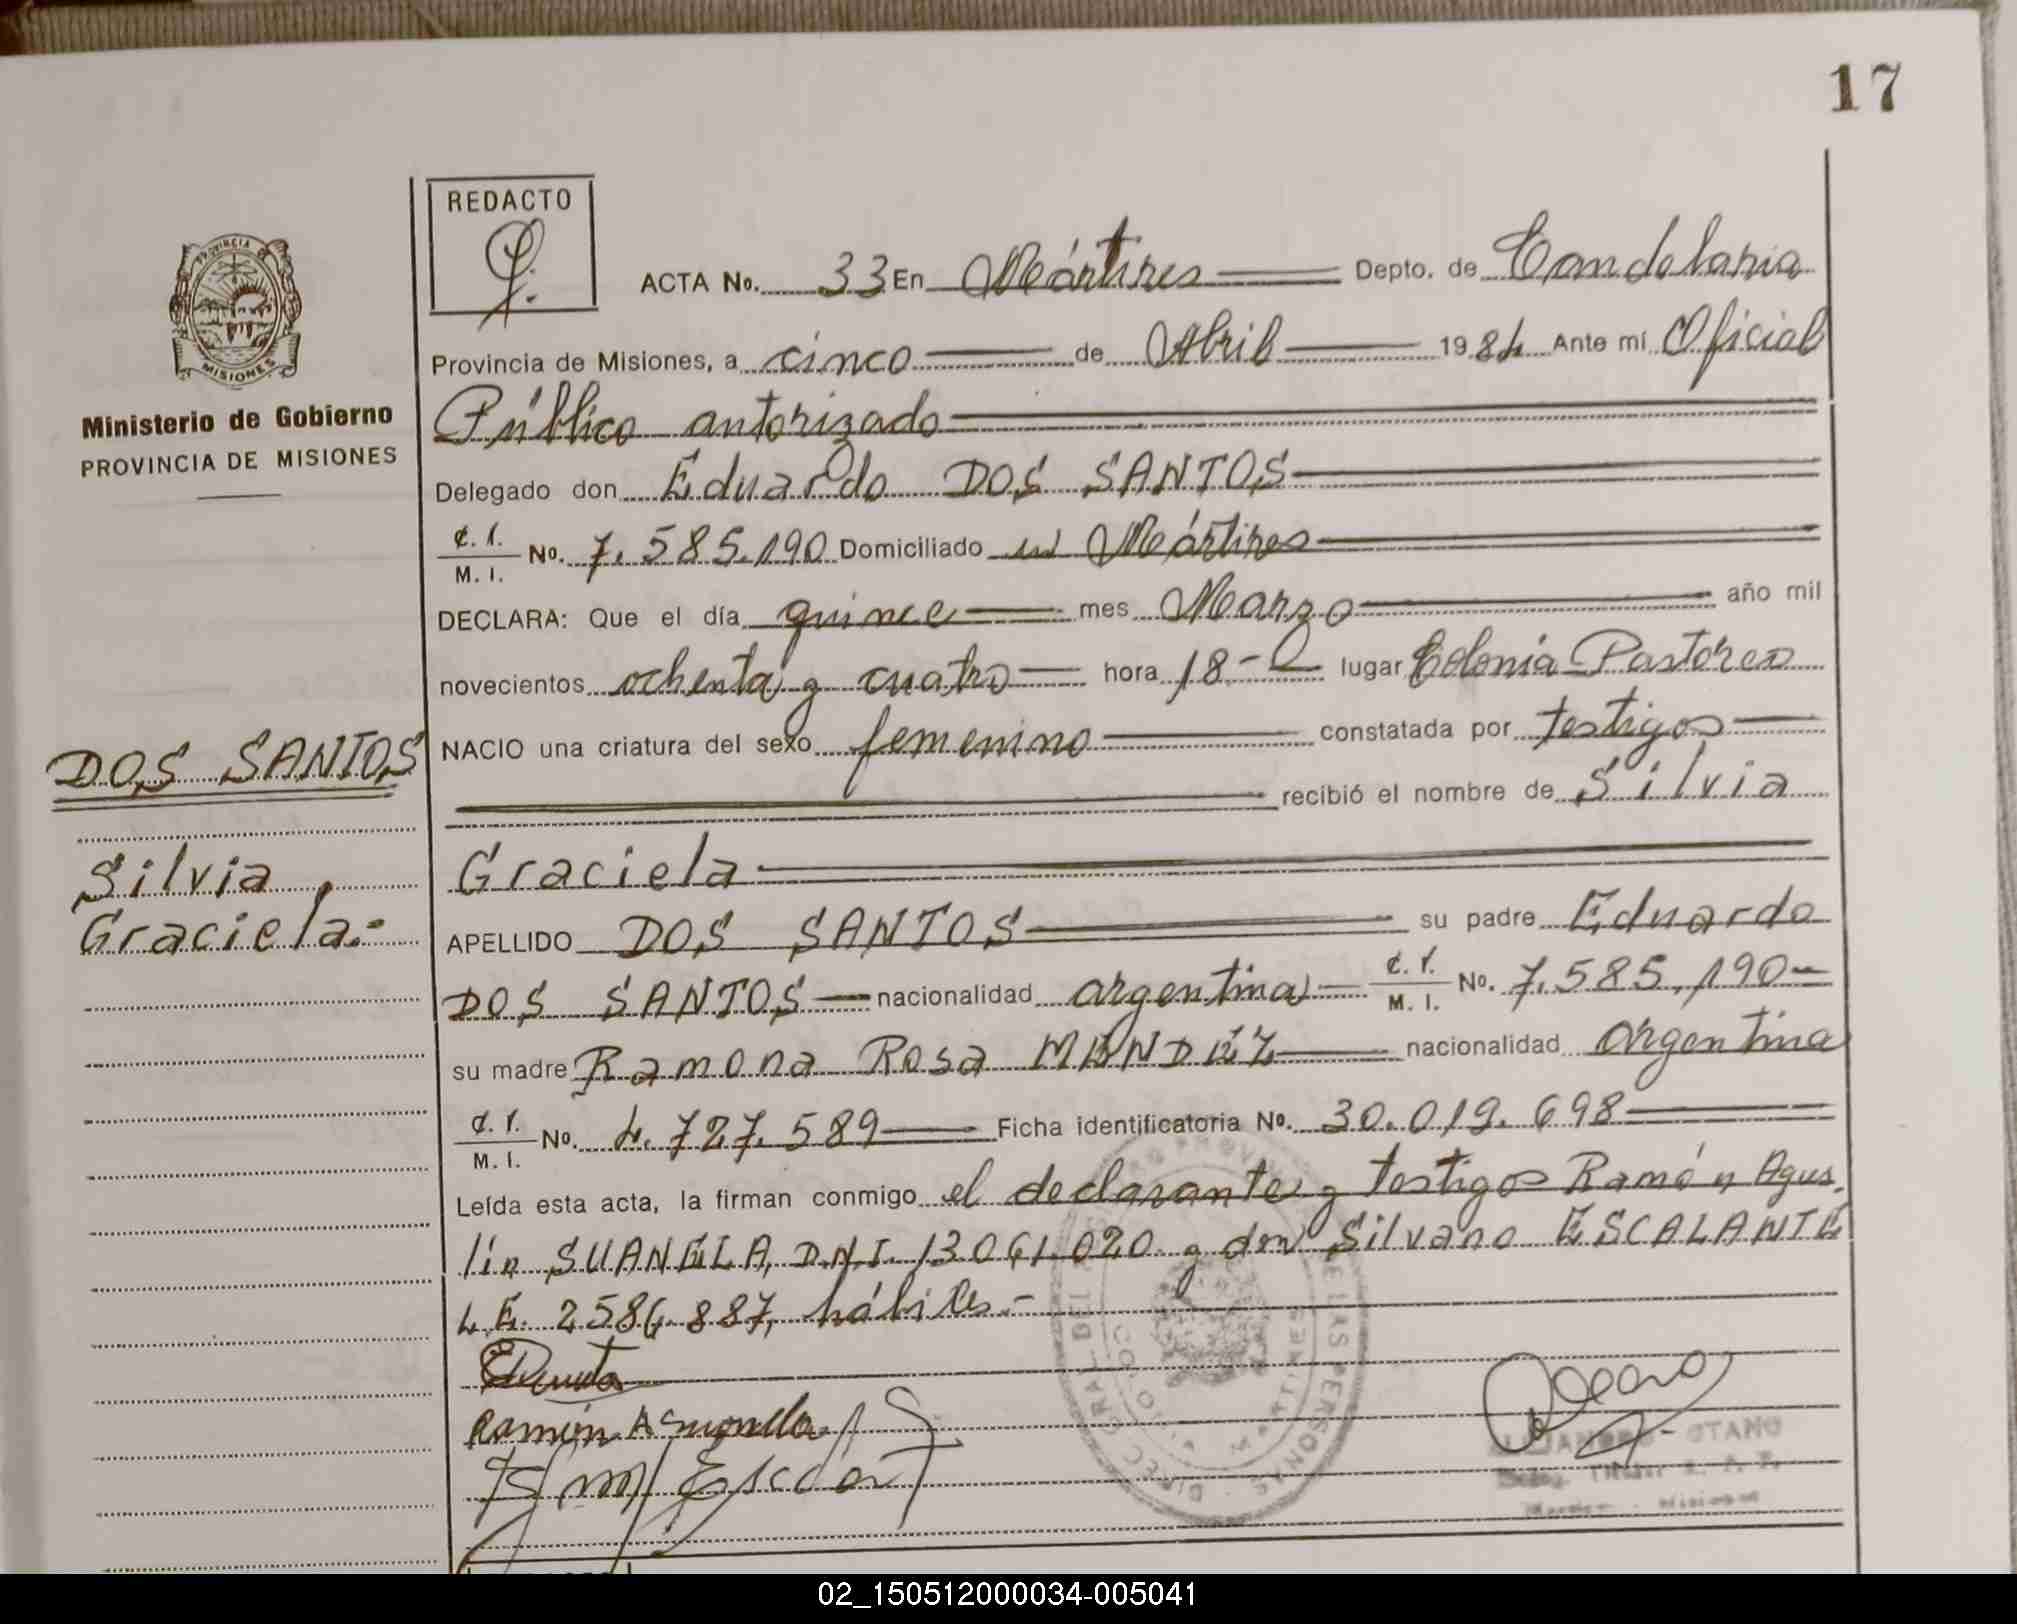 17
REDACTO
PROVINCIA
MISIONES
Ministerio de Gobierno
PROVINCIA DE MISIONES
ACTA No. 33 En Mártires Depto. de Candelaria
Provincia de Misiones, a cinco de Abril 1984 Ante mí Oficial
Público autorizado
Delegado don Eduardo DOS SANTOS
C. I. / M. I. No. 7.585.190 Domiciliado en Mártires
DECLARA: Que el día quince mes Marzo año mil
novecientos ochenta y cuatro hora 18- lugar Colonia Pastoreo
NACIO una criatura del sexo femenino constatada por testigos
recibió el nombre de Silvia
Graciela
DOS SANTOS
Silvia
Graciela.-
APELLIDO DOS SANTOS su padre Eduardo
DOS SANTOS nacionalidad argentina C. I. / M. I. No. 7.585.190-
su madre Ramona Rosa MENDEZ nacionalidad argentina
C. I. / M. I. No. 4.727.589 Ficha identificatoria No. 30.019.698
Leída esta acta, la firman conmigo el declarante y testigos Ramón Agus
lín D.N.I. y don Silvano ESCALANTE
L.E. hábiles.-
Ramón A
OTANO
02_150512000034-005041